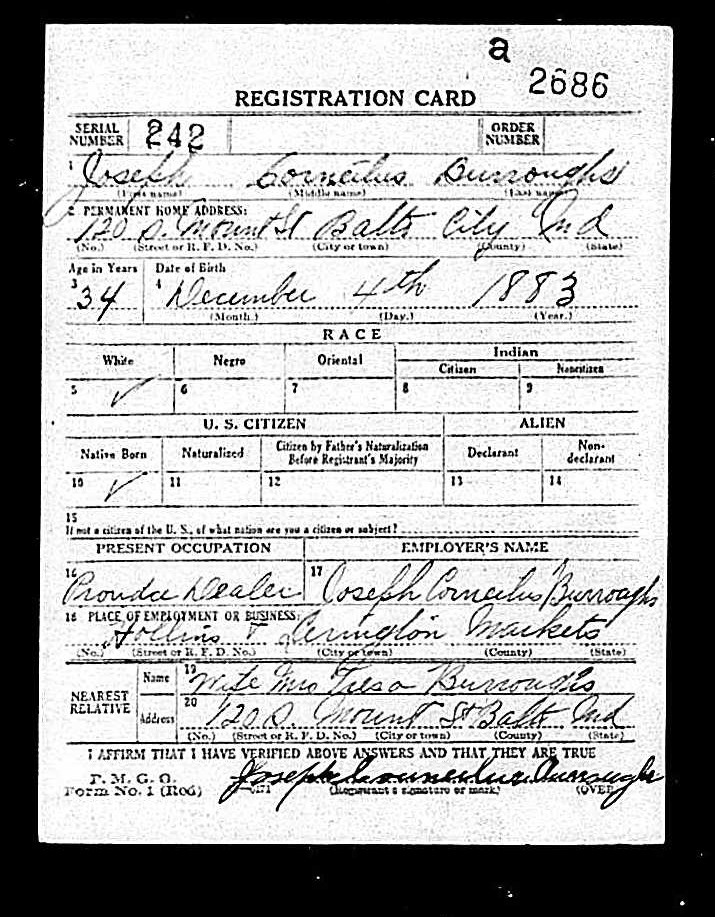 a
2686
REGISTRATION CARD
SERIAL NUMBER 242 ORDER NUMBER
1 Joseph Corneilus Burroughs
(First name) (Middle name) (Last name)
2 PERMANENT HOME ADDRESS:
120 S. Mount St Balto City Md
(No.) (Street or R. F. D. No.) (City or town) (County) (State)
Age in Years Date of Birth
3 34 4 December 4th 1883
(Month.) (Day.) (Year.)
RACE
White Negro Oriental Indian
Citizen Noncitizen
5 ✓ 6 7 8 9
U. S. CITIZEN ALIEN
Native Born Naturalized Citizen by Father's Naturalization Before Registrant's Majority Declarant Non-declarant
10 ✓ 11 12 13 14
15
If not a citizen of the U. S., of what nation are you a citizen or subject?
PRESENT OCCUPATION EMPLOYER'S NAME
16 Dealer 17 Joseph Corneilus Burroughs
18 PLACE OF EMPLOYMENT OR BUSINESS:
Hollins & Lexington Markets
(No.) (Street or R. F. D. No.) (City or town) (County) (State)
NEAREST RELATIVE
Name 19 Wife Mrs Tresa Burroughs
Address 20 120 S. Mount St Balto Md
(No.) (Street or R. F. D. No.) (City or town) (County) (State)
I AFFIRM THAT I HAVE VERIFIED ABOVE ANSWERS AND THAT THEY ARE TRUE
P. M. G. O.
Form No. 1 (Red) Joseph Burroughs
(Registrant's signature or mark) (OVER)